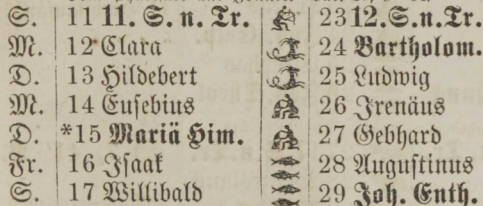 S. 11 11. S. n. Tr. 23 12. S. n. Tr.
M. 12 Clara 24 Bartholom.
D. 13 Hildebert 25 Ludwig
M. 14 Eusebius 26 Irenäus
D. *15 Mariä Him. 27 Gebhard
Fr. 16 Isaak 28 Augustinus
S. 17 Willibald 29 Joh. Enth.